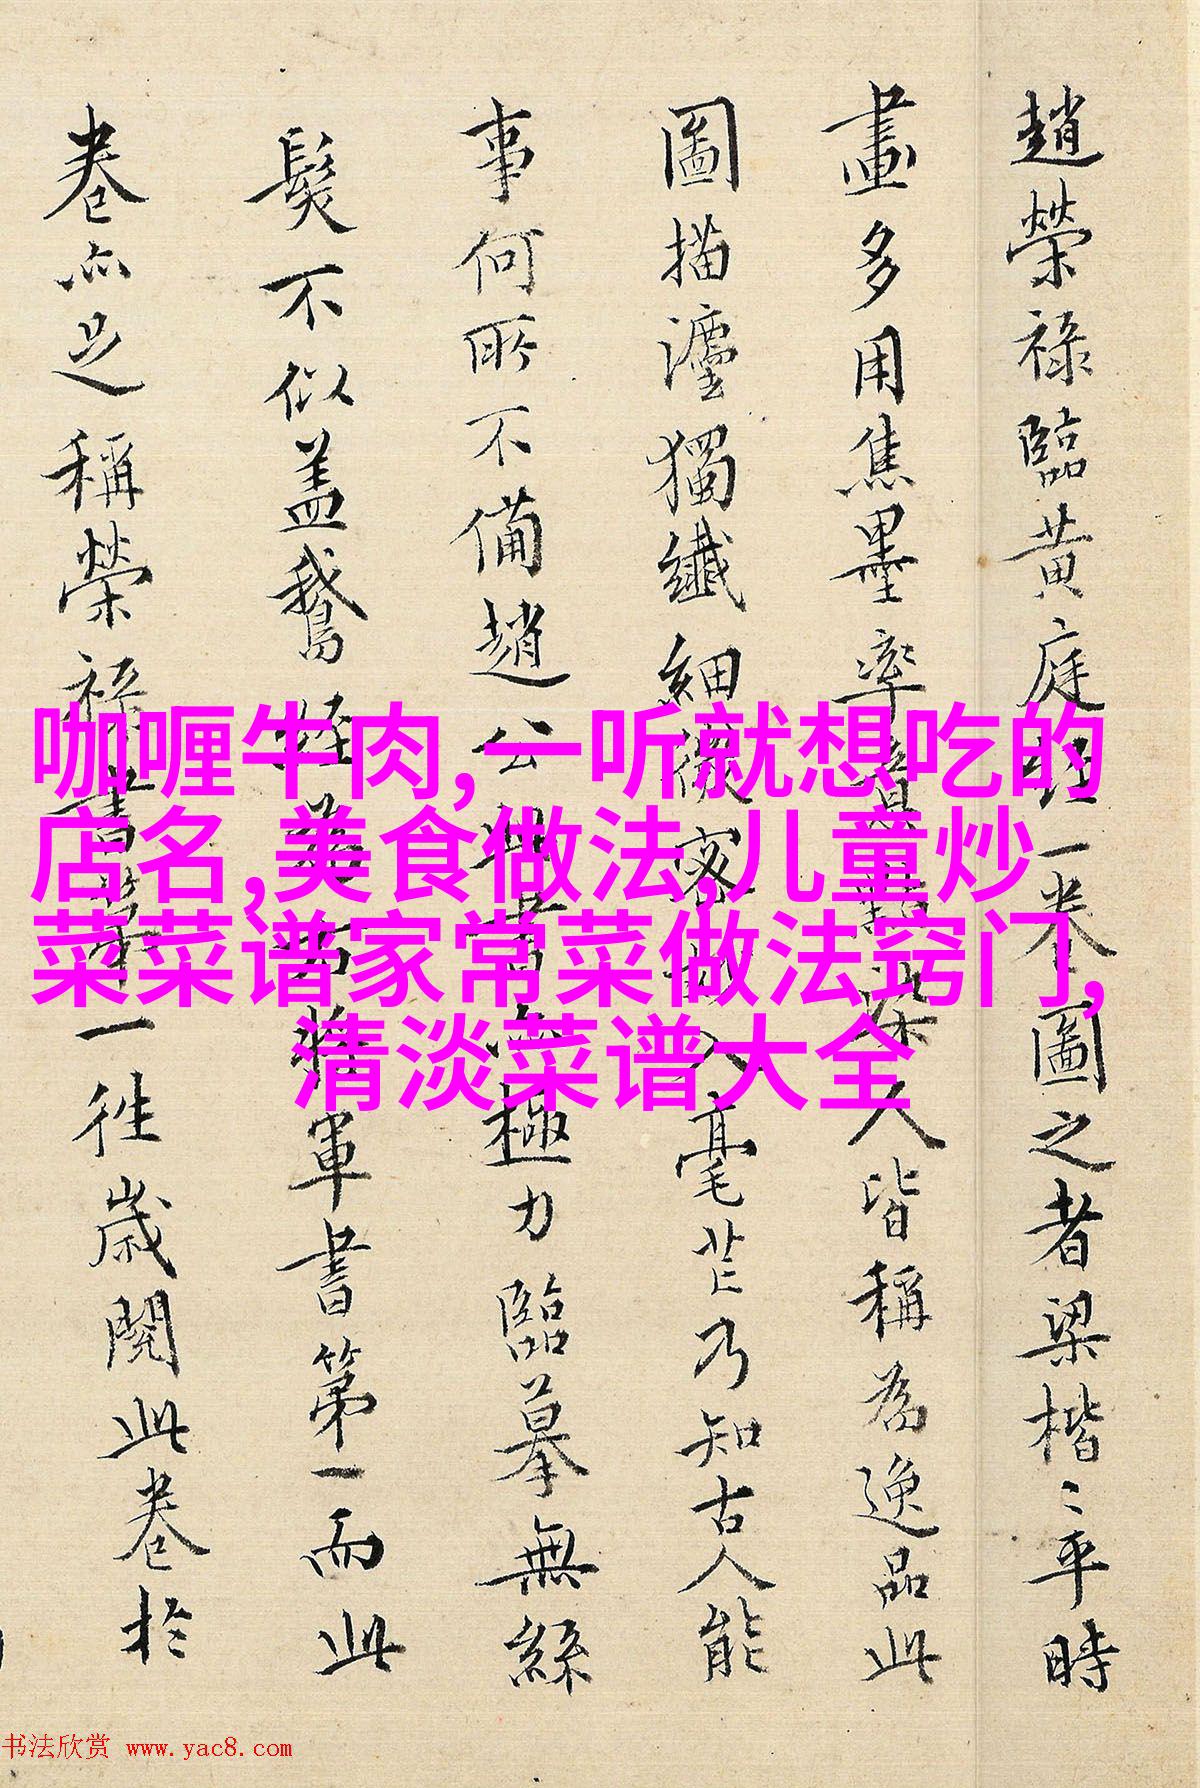 趙榮祿臨黃庭經一卷圖之者梁楷〻平時
畫多用焦墨率人皆稱為逸品此
圖描瀍獨纖細微密入毫芒乃知古人能
事何所不備趙公此書極力臨摹無絲
髮不似蓋鵝右將軍書第一而此
卷亦足稱榮祿書第一往歲閱此卷於
咖喱牛肉,一听就想吃的
店名,美食做法,儿童炒
菜菜谱家常菜做法窍门,
清淡菜谱大全
书法欣赏 www.yac8.com